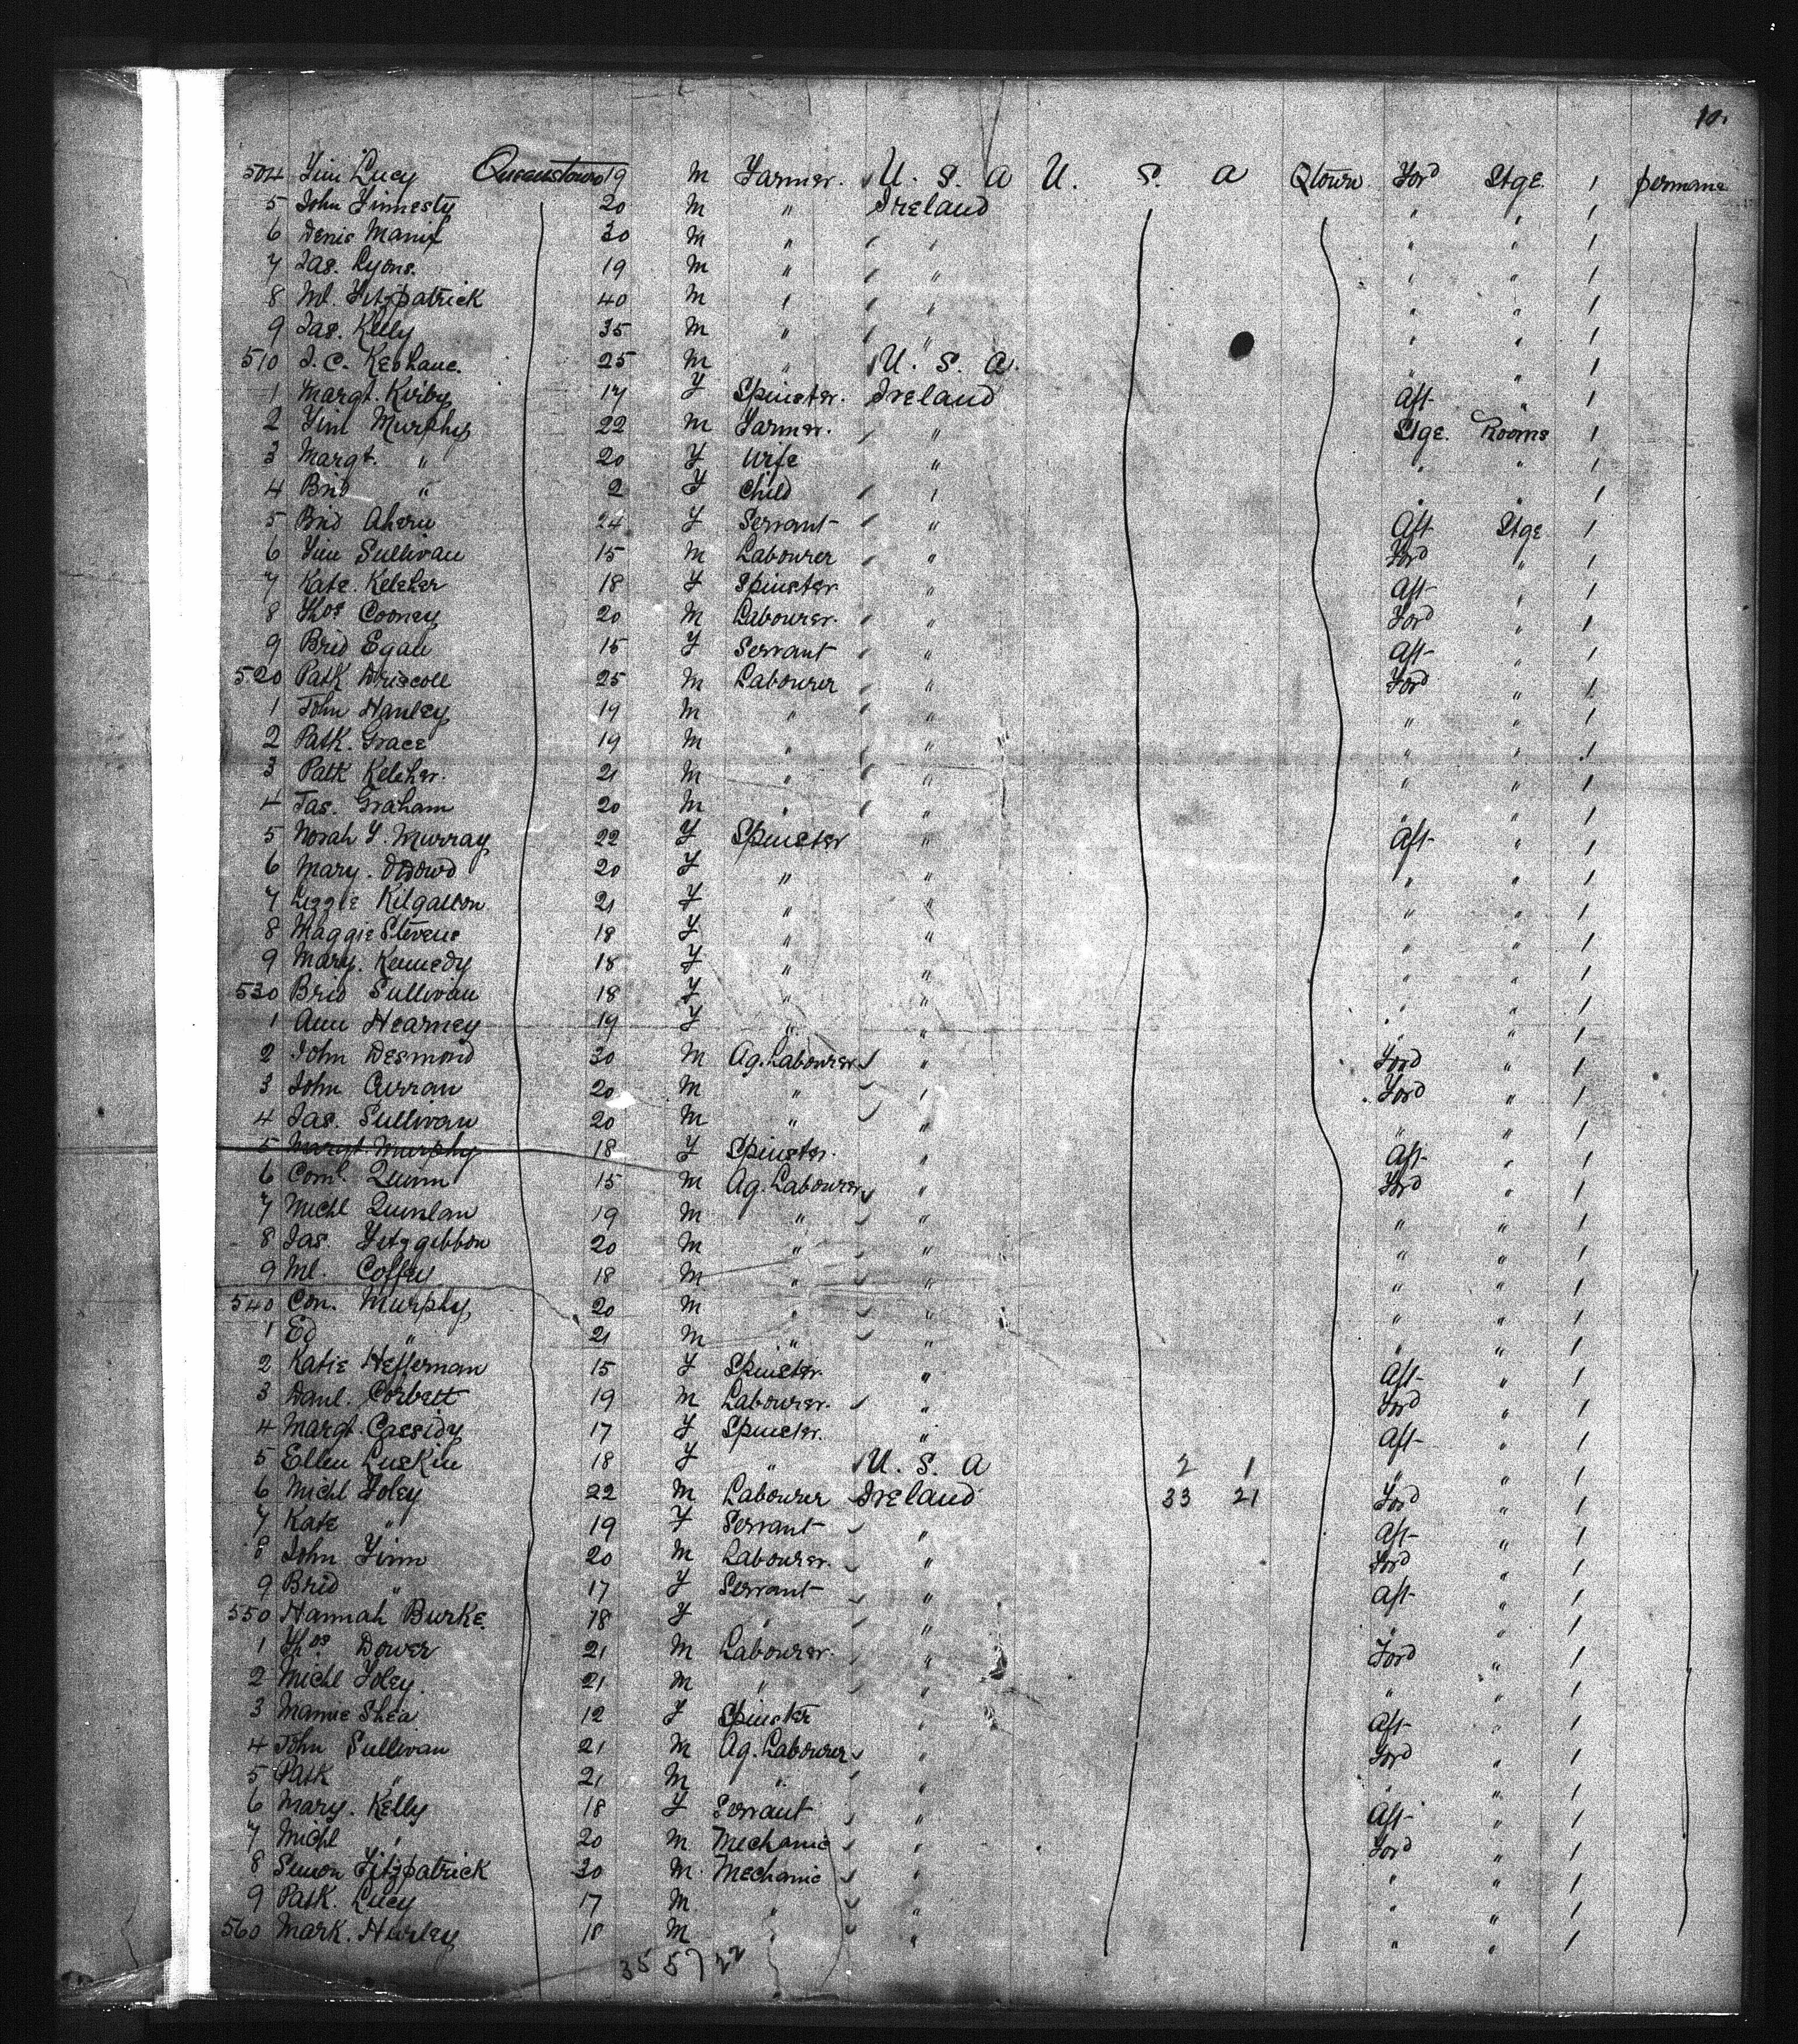 10.
504 Tim Lucy Queenstown 19 M Farmer. U. S. A U. S. A Qtown Ford Stge. 1 permane
5 John Finnesty 20 M " Ireland " " 1
6 Denis Manix 30 M " " " " 1
7 Jas. Lyons. 19 M " " " " 1
8 Ml. Fitzpatrick 40 M " " " " 1
9 Jas. Kelly 35 M " " " " 1
510 J. C. Keohane. 25 M " U. S. A. " " 1
1 Margt. Kirby 17 F Spinster. Ireland Aft " 1
2 Tim Murphy 22 M Farmer. " Stge. Rooms 1
3 Margt. " 20 F Wife " " " 1
4 Brid " 2 F Child " " " 1
5 Brid Ahern 24 F Servant " Aft Stge 1
6 Tim Sullivan 15 M Labourer " Ford " 1
7 Kate. Keleher 18 F Spinster " Aft " 1
8 Thos Cooney 20 M Labourer. " Ford " 1
9 Brid Egan 15 F Servant " Aft " 1
520 Patk Driscoll 25 M Labourer " Ford " 1
1 John Hanley 19 M " " " " 1
2 Patk. Grace 19 M " " " " 1
3 Patk Keleher. 21 M " " " " 1
4 Jas. Graham 20 M " " " " 1
5 Norah F. Murray 22 F Spinster " Aft " 1
6 Mary. ODowd 20 F " " " " 1
7 Lizzie Kilgallon 21 F " " " " 1
8 Maggie Stevens 18 F " " " " 1
9 Mary. Kennedy 18 F " " " " 1
530 Brid Sullivan 18 F " " " " 1
1 Ann Hearney 19 F " " " " 1
2 John Desmond 30 M Ag. Labourer " Ford " 1
3 John Curran 20 M " " Ford " 1
4 Jas. Sullivan 20 M " " " " 1
5 Margt. Murphy 18 F Spinster. " Aft " 1
6 Corns. Quinn 15 M Ag. Labourer " Ford " 1
7 Michl Quinlan 19 M " " " " 1
8 Jas. Fitzgibbon 20 M " " " " 1
9 Ml. Coffey 18 M " " " " 1
540 Con. Murphy 20 M " " " " 1
1 Ed " 21 M " " " " 1
2 Katie Heffernan 15 F Spinster " Aft " 1
3 Danl. Corbett 19 M Labourer. " Ford " 1
4 Margt. Cassidy 17 F Spinster. " Aft " 1
5 Ellen Luskin 18 F " U. S. A 2 1 " " 1
6 Michl Foley 22 M Labourer Ireland 33 21 Ford " 1
7 Kate " 19 F Servant " Aft " 1
8 John Finn 20 M Labourer. " Ford " 1
9 Brid " 17 F Servant " Aft " 1
550 Hannah Burke. 18 F " " " " 1
1 Thos Dower 21 M Labourer. " Ford " 1
2 Michl Foley. 21 M " " " " 1
3 Mamie Shea 12 F Spinster " Aft " 1
4 John Sullivan 21 M Ag. Labourer " Ford " 1
5 Patk " 21 M " " " " 1
6 Mary. Kelly 18 F Servant " Aft " 1
7 Michl " 20 M Mechanic " Ford " 1
8 Simon Fitzpatrick 30 M. Mechanic " " " 1
9 Patk. Lucy 17 M " " " " 1
560 Mark. Hurley 18 M " " " " 1
35 5 / 22